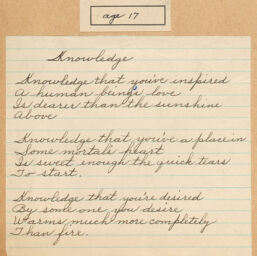 age 17
Knowledge
Knowledge that you've inspired
A human being's love
Is dearer than the sunshine
Above
Knowledge that you've a place in
Some mortal's heart
Is sweet enough the quick tears
To start.
Knowledge that you're desired
By some one you desire
Warms much more completely
Than fire.